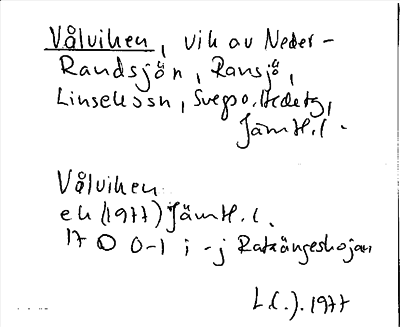 Vålviken, vik av Neder-
Randsjön, Ransjö,
Linsellssn, Svegs o. Hedetg,
Jämtl.l.
Vålviken
ek (1977) Jämtl.l.
17 0-1 i -j
L.(.). 1977